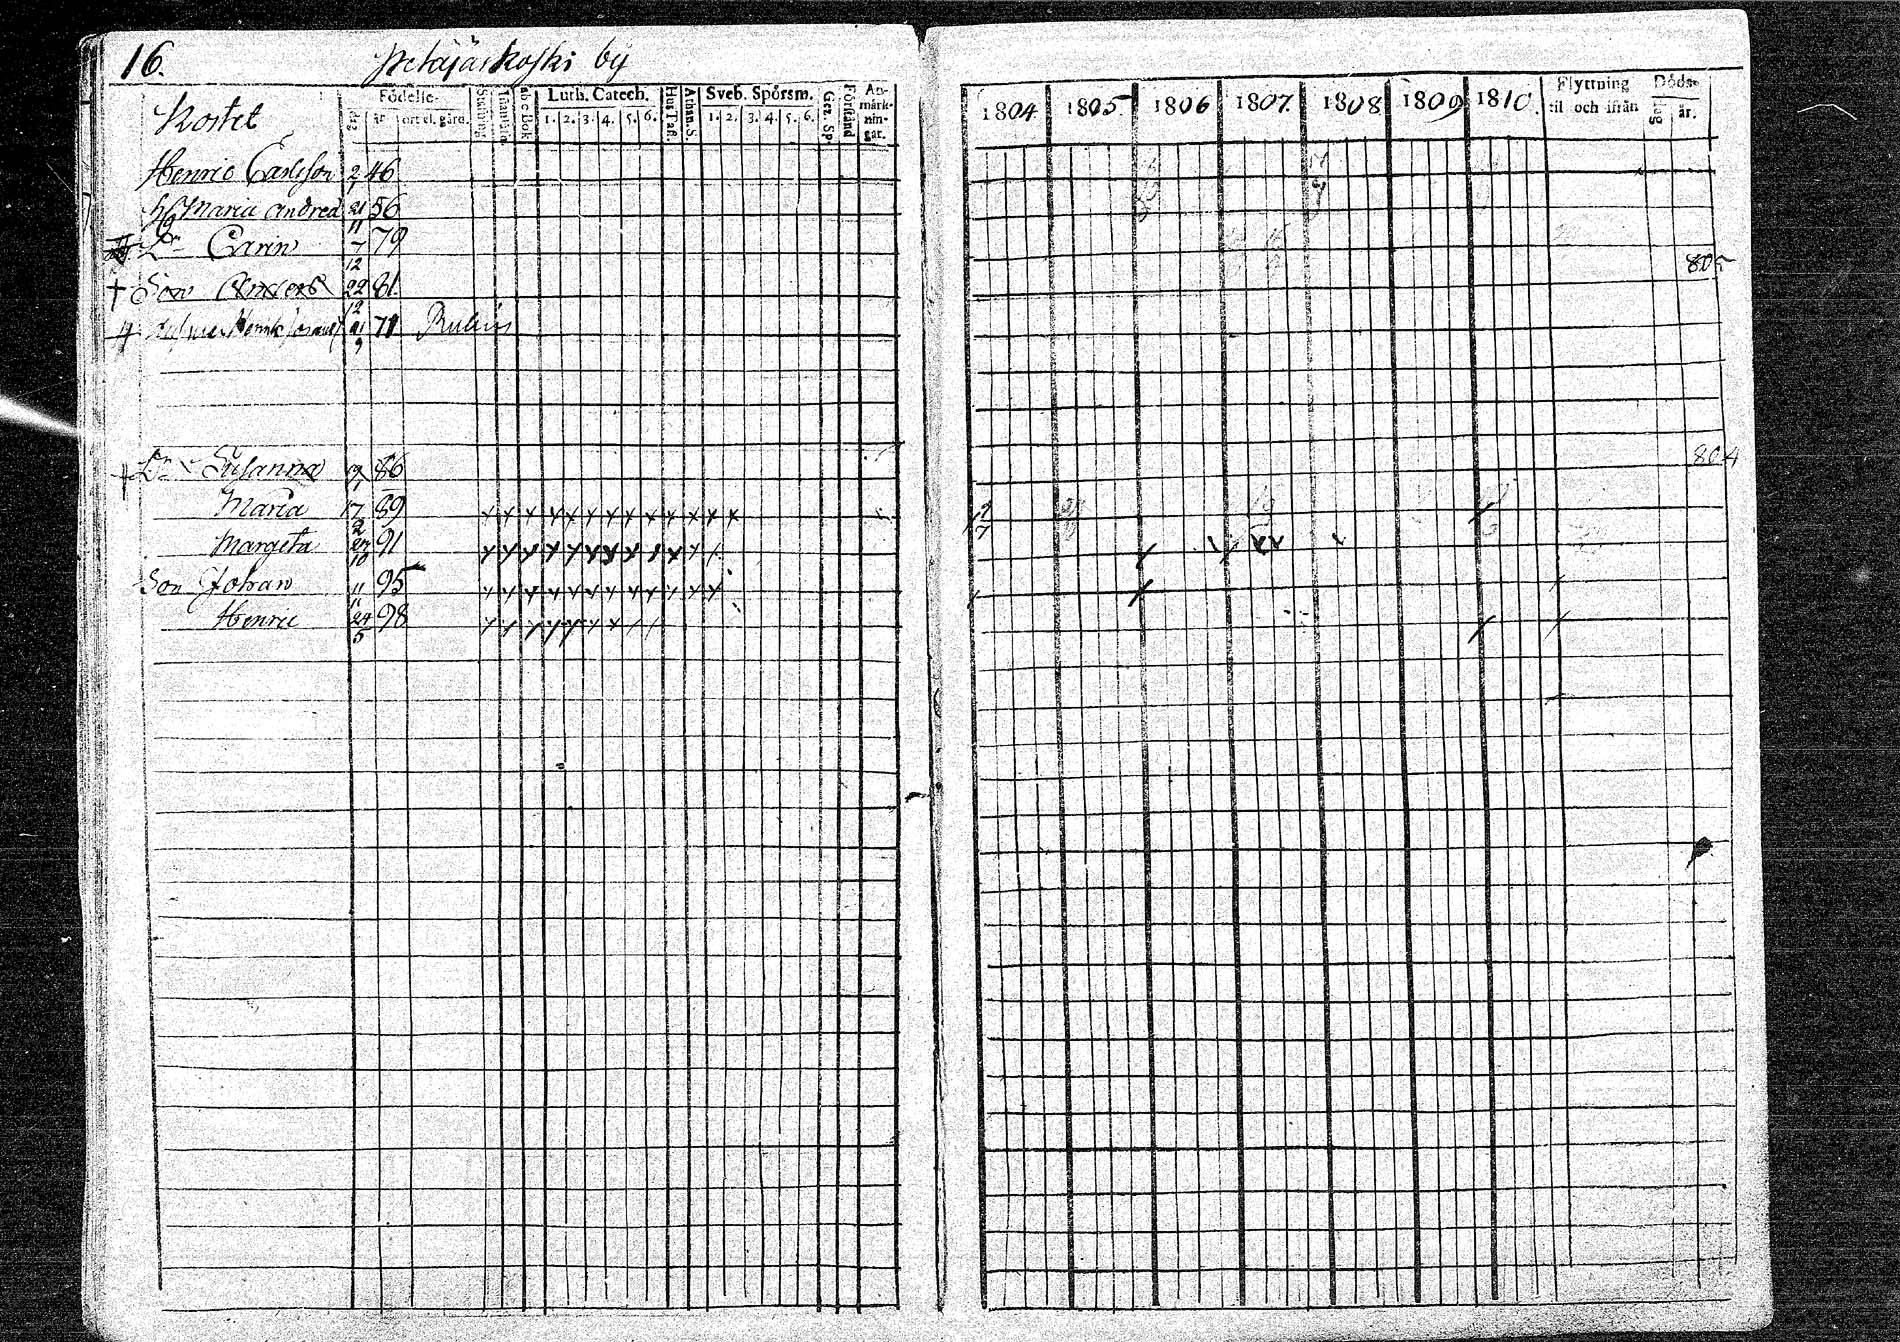 16. Petäjäskoski by
Födelse- Luth. Catech. Hus Tafl. Athan. S. Sveb. Spörsm. Gez. Sp. Förstånd An-märk-nin-gar.
dag år ort el. gård. ab c Bok 1. 2. 3. 4. 5. 6. 1. 2. 3. 4. 5. 6.
1804. 1805. 1806 1807. 1808 1809 1810. Flyttning til och ifrån Döds- dag år.
Kostet
Henric Carlsson 2/1 46
Maria Andred 21/11 56
Dr Carin 7/12 79
Son Anders 22/12 81. 805
Henrik 21/9 71
Dr Susanna 86 804
Maria 17/2 89
Margeta 27/10 91
Son Johan 11/11 95
Henric 24/5 98